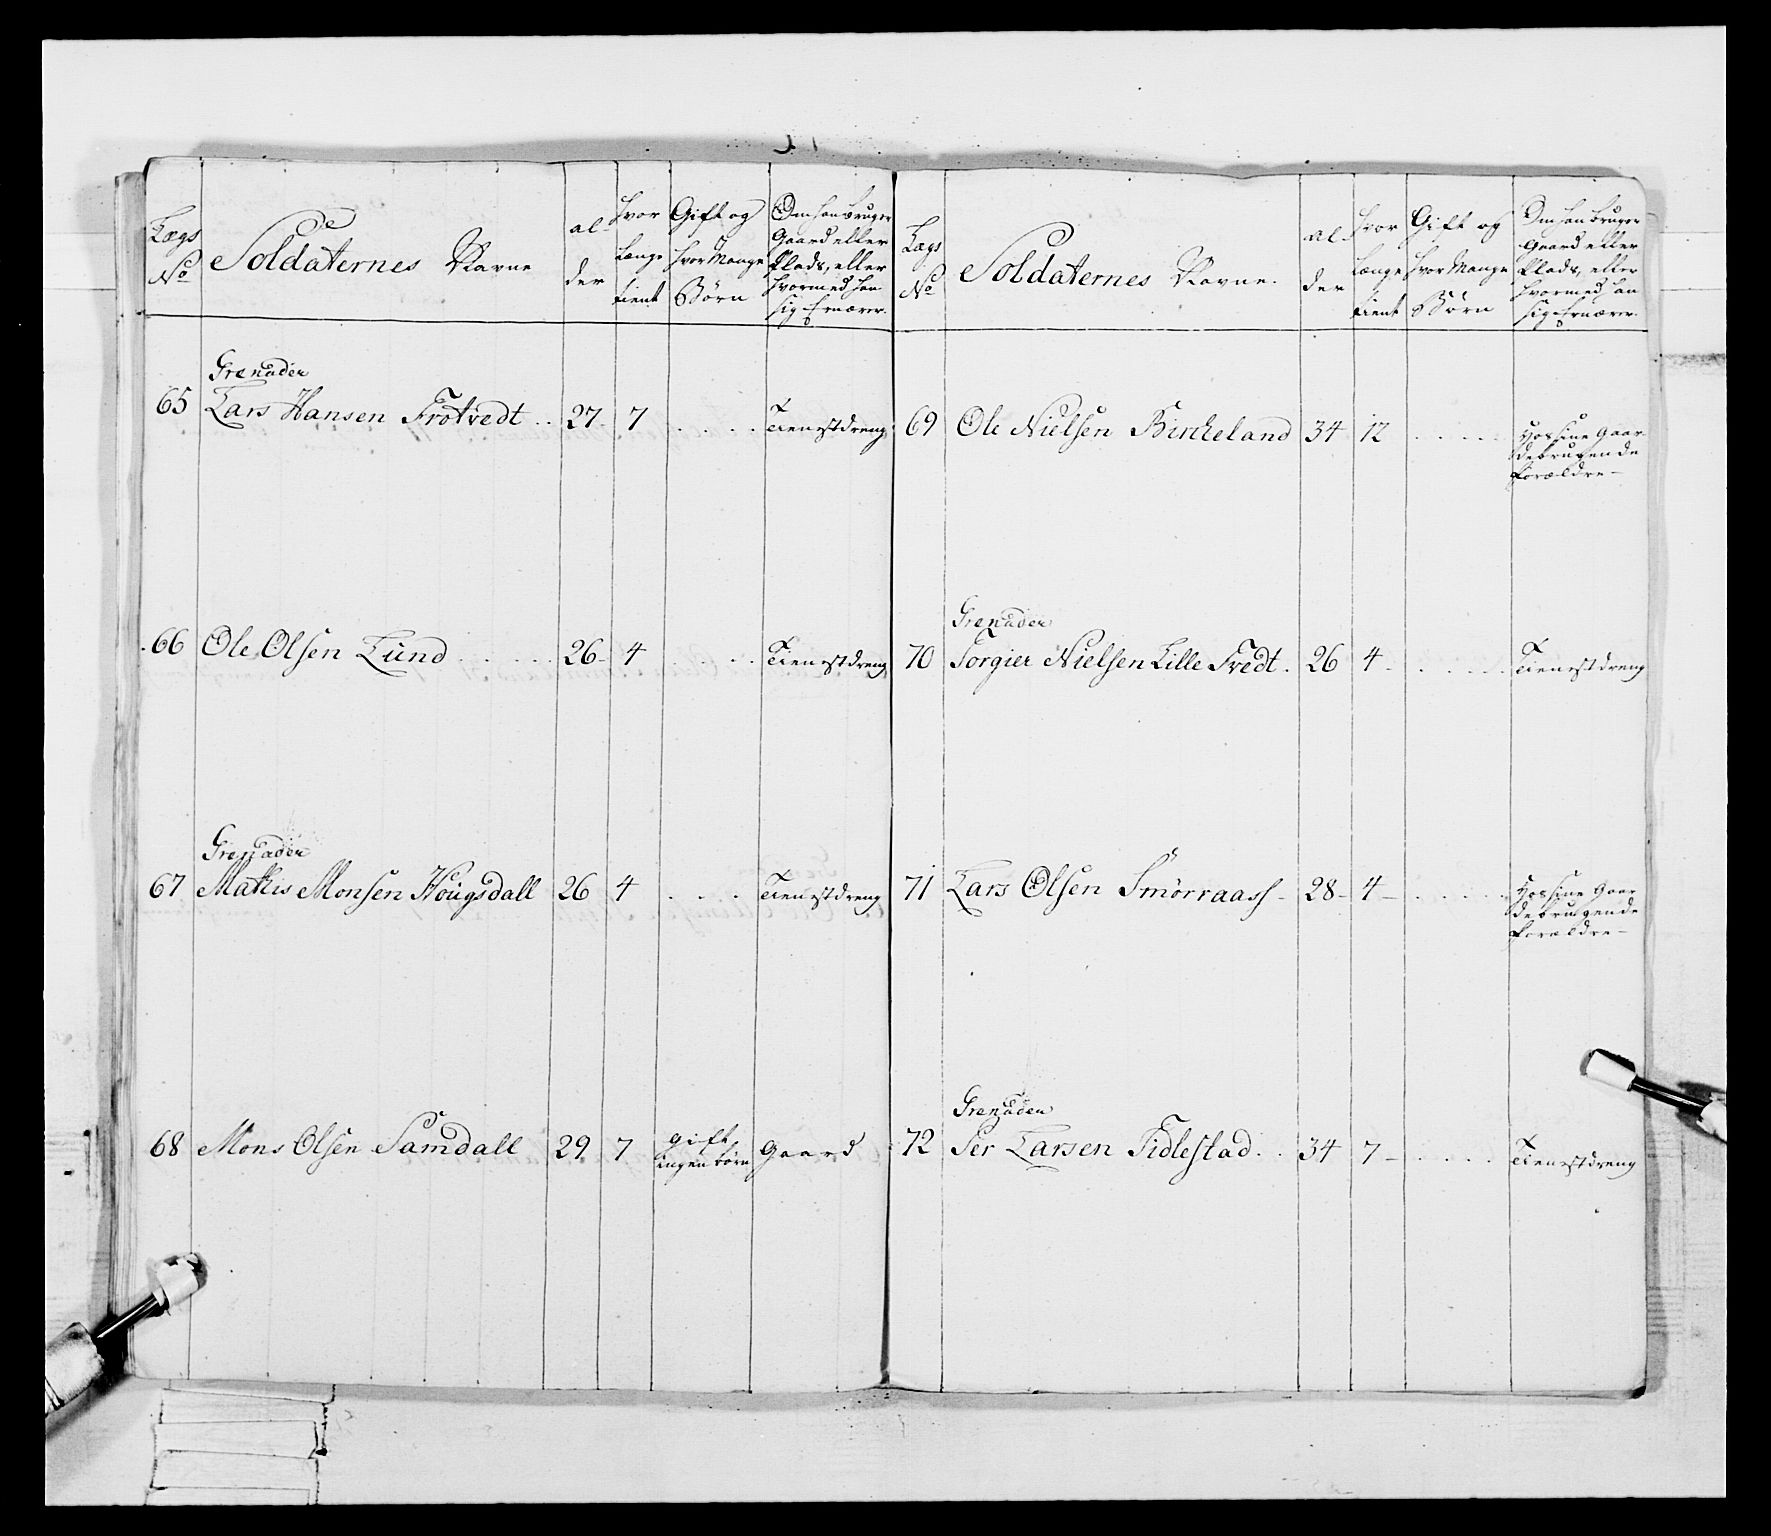 Lægs No
De Soldaternes Navne
al der
hvor Længe tient
Gift og hvor Mange Børn
Om han bruger Gaard eller Plads, eller hvormed han sig Ernærer.
Grenader
65 Lars Hansen Trötvedt .. 27 7 . . . . Tienestdreng
66 Ole Olsen Lund . . . . . 26 4 . . . . Tienestdreng
Grenader
67 Mathis Monsen Hougsdall 26 4 . . . . Tienestdreng
68 Mons Olsen Samdall 29 7 gift ingen børn Gaard
Lægs No
Soldaternes Navne.
al der
hvor Længe tient
Gift og hvor Mange Børn
Om han bruger Gaard eller Plads, eller hvormed han sig Ernærer.
69 Ole Nielsen Bircheland 34 12 . . . . . Hos sine Gaar
debrugende
Forældre –
Grenader
70 Torgier Nielsen Lille Tvedt . 26 4 - . . . . . Tienestdreng
71 Lars Olsen Smörraass - 28 - 4 – . . . . . Hos sine Gaar
debrugende
Forældre –
Grenader
72 Per Larsen Tidlestad . . 34 7 – . . . . Tienestdreng